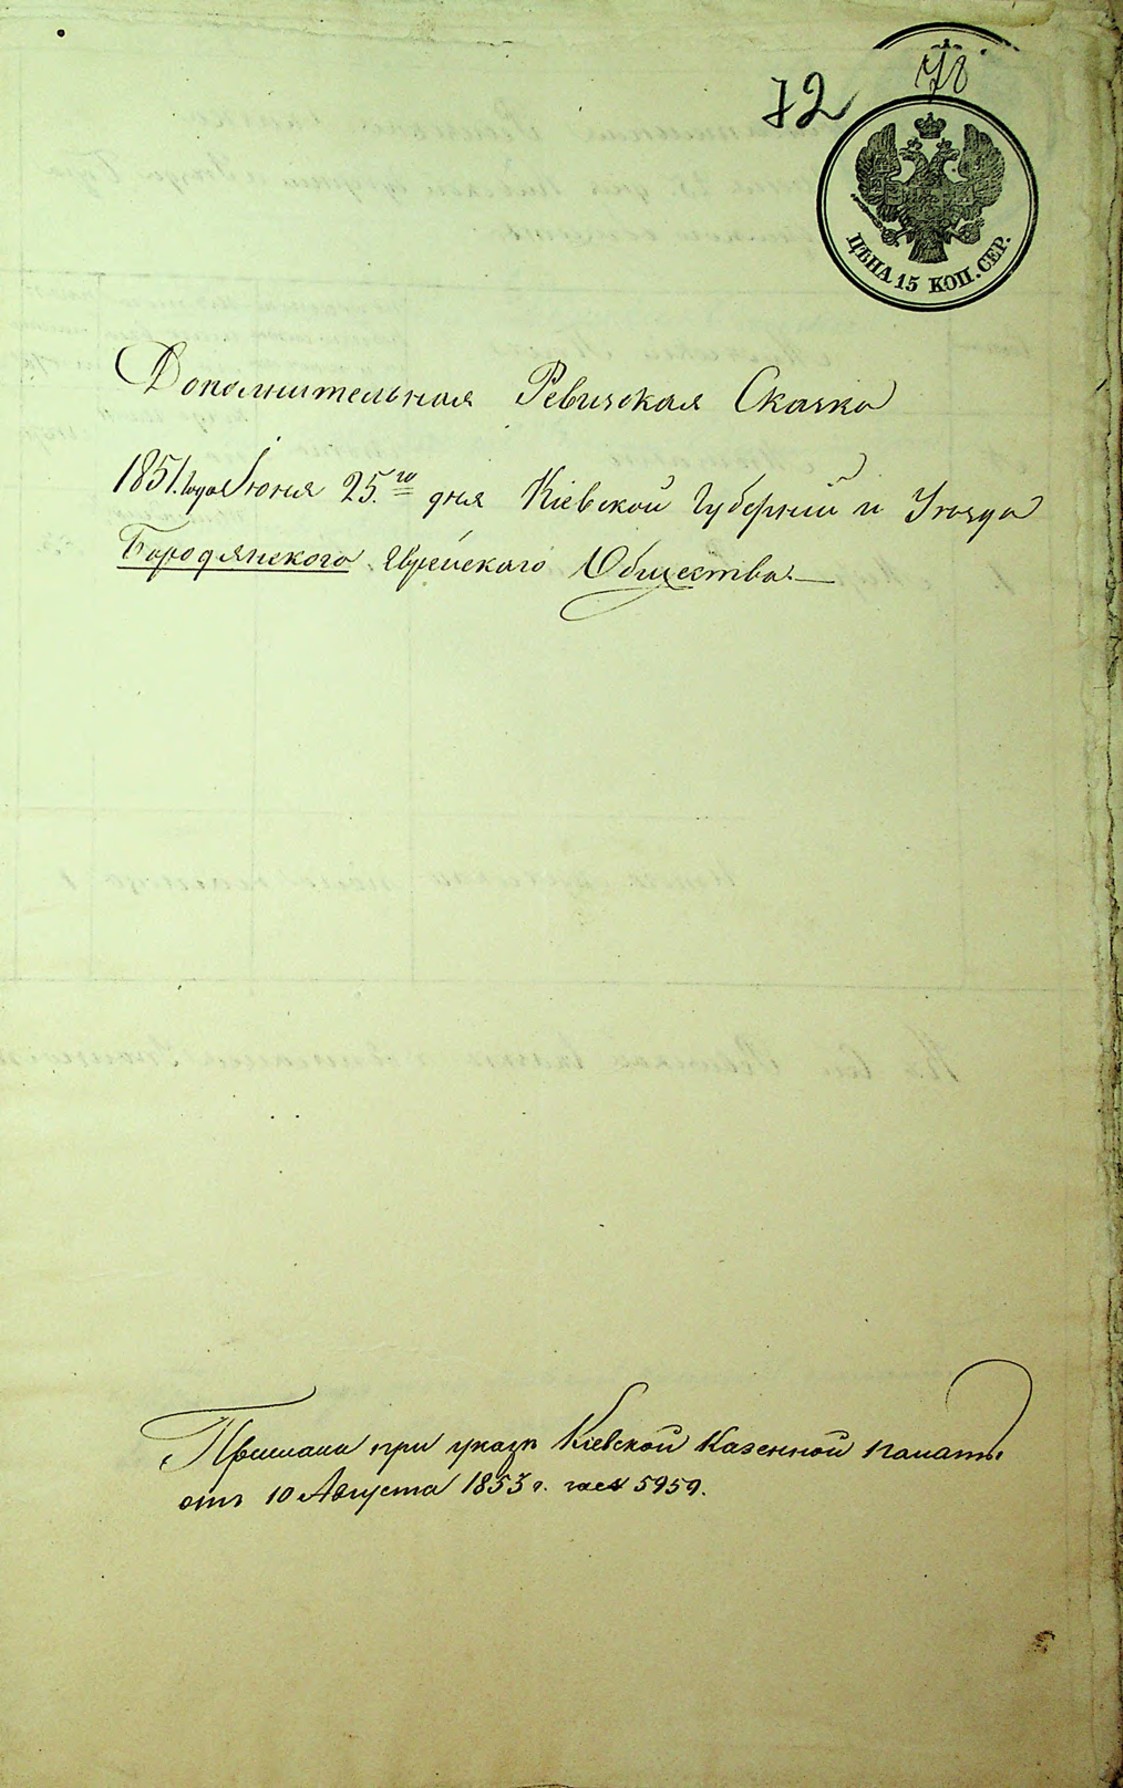 72
78
ЦѢНА 15 КОП. СЕР.
Дополнительная Ревизская Сказка
1851. года Іюня 25.го дня Кіевской Губерніи и Уезда
Бородянского Еврейскаго Общества.
Прислана при указѣ Кіевской Казенной Палаты
отъ 10 Августа 1853 г. 5959.